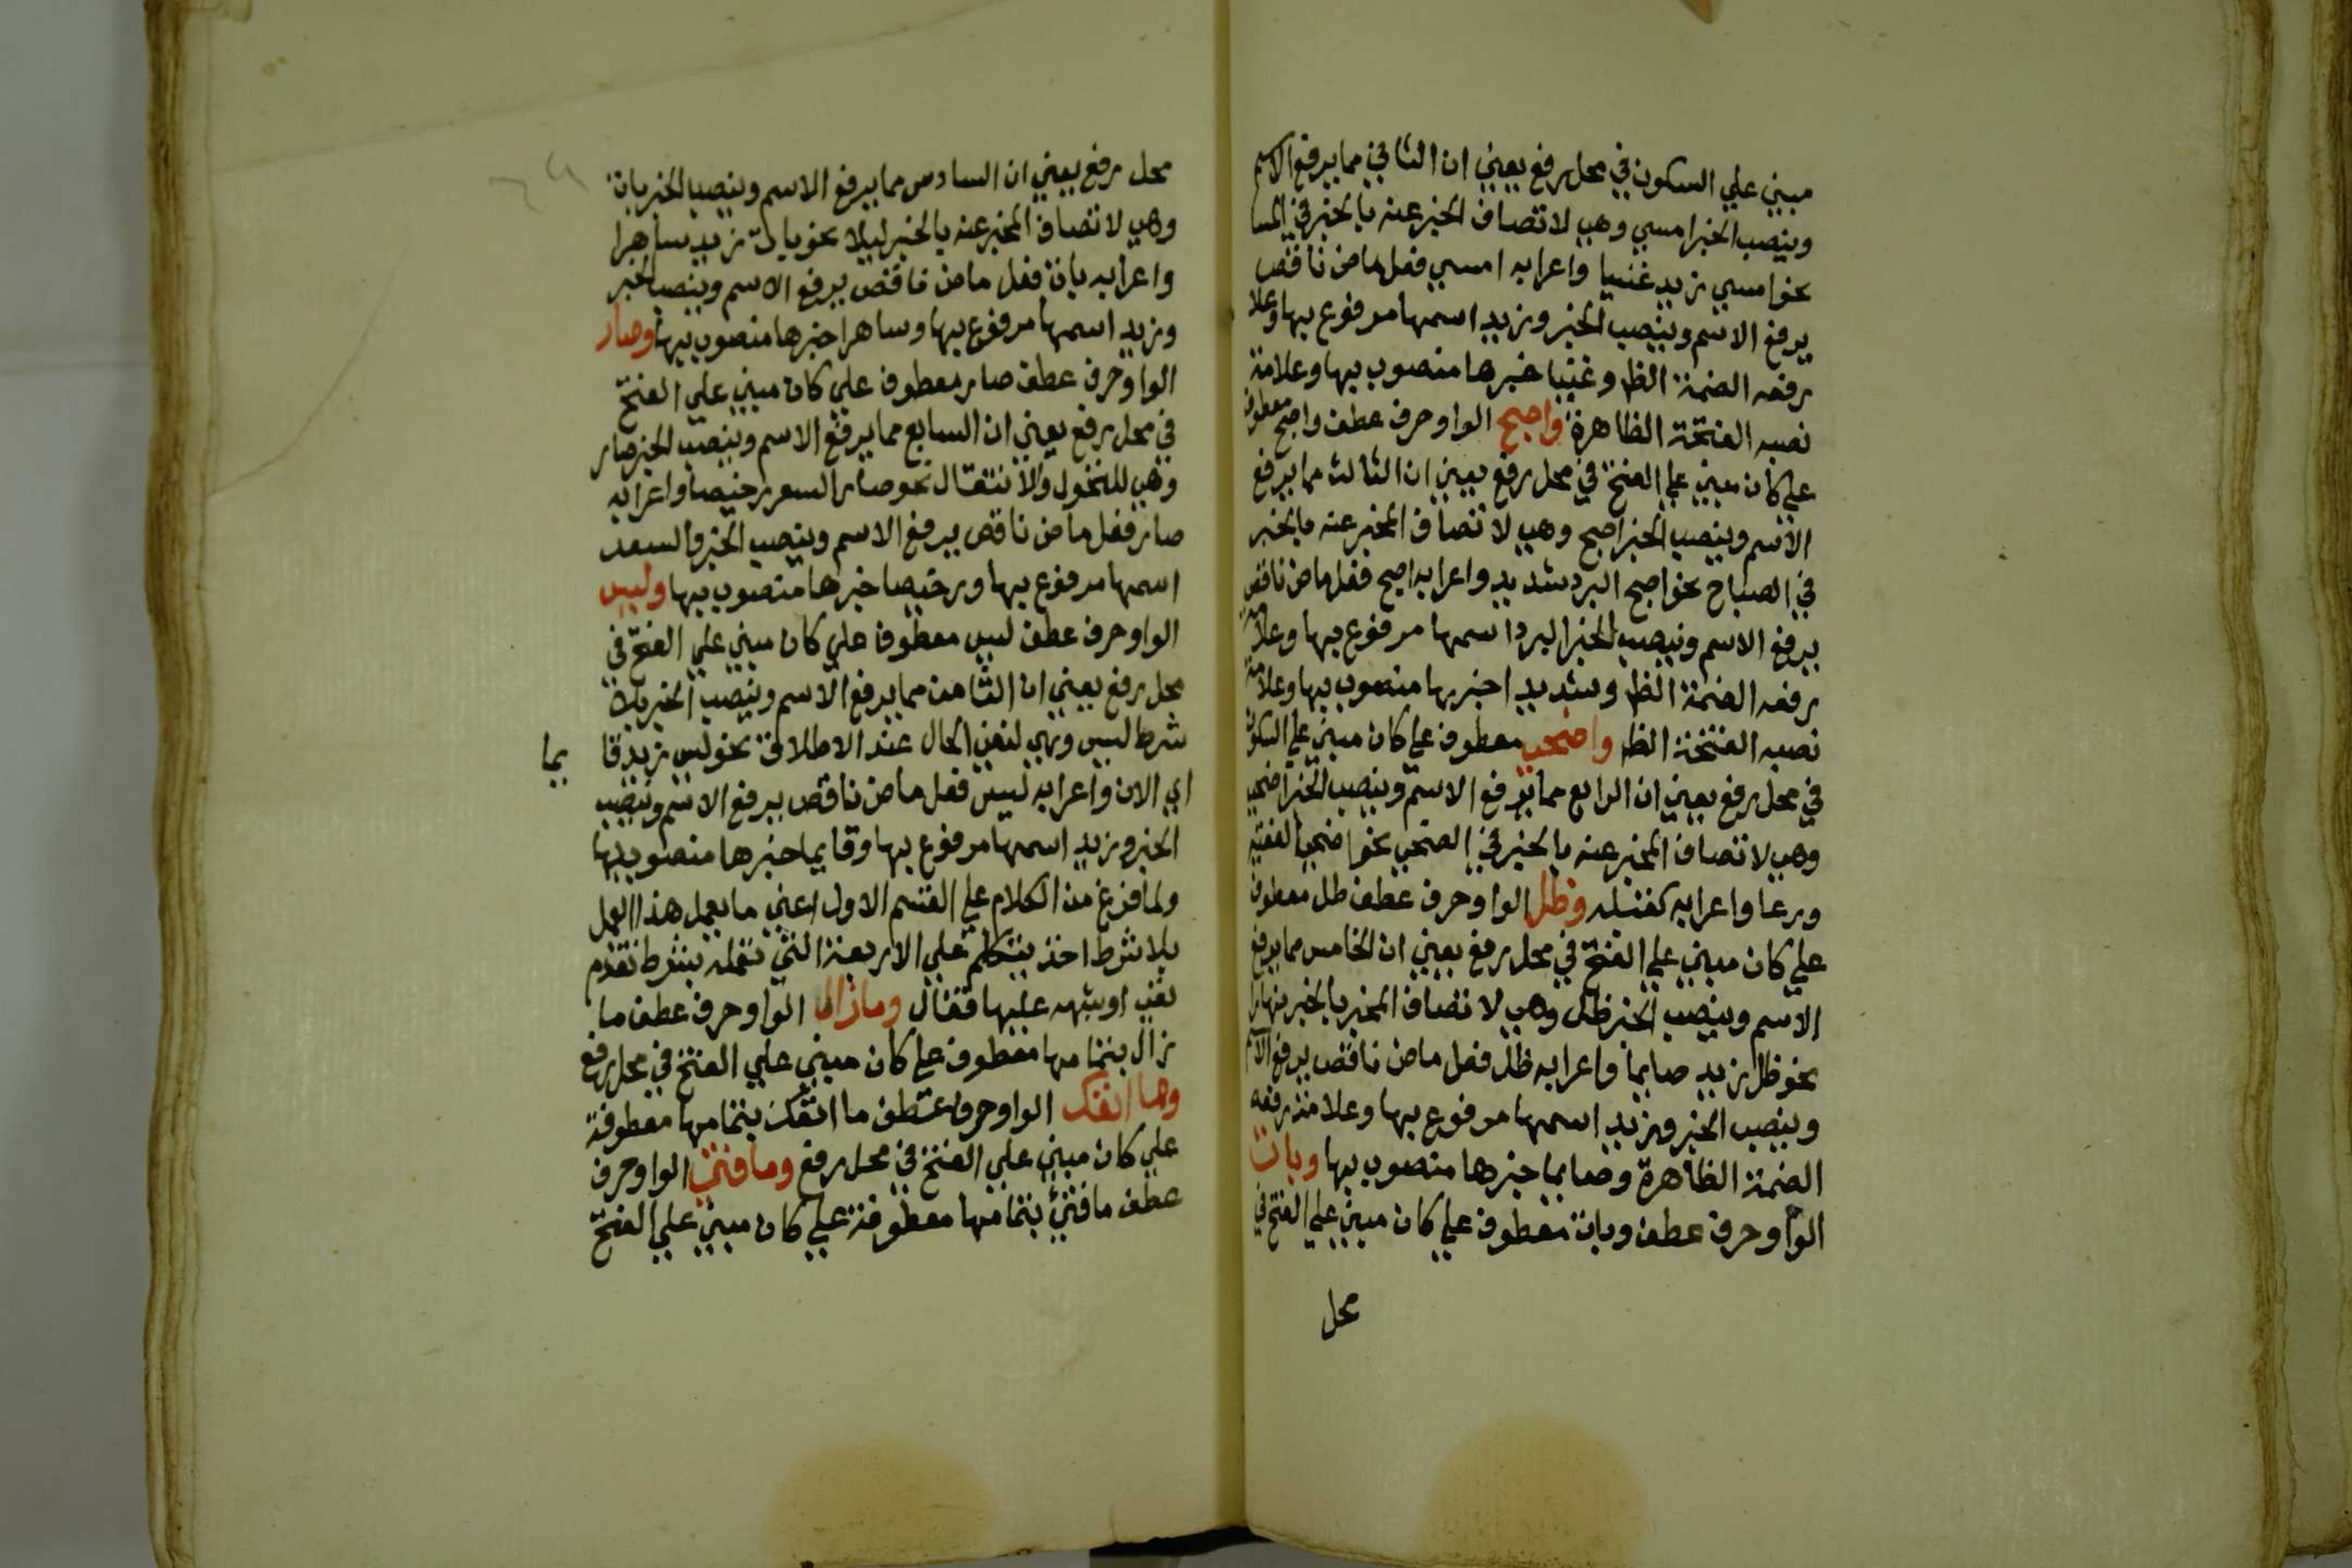 مبني علي السكون في محل رفع يعني ان الثاني مما يرفع الاسم
وينصب الخبر امسي وهي لاتصاف المخبر عنه بالخبر في المسا
نحو امسي زيد غنيا واعرابه امسي فعل ماض ناقص
يرفع الاسم وينصب الخبر وزيد اسمها مرفوع بها وعلا
رفعه الضمة الظ وغنيا خبرها منصوب بها وعلامة
نصبه الفتحة الظاهرة واصبح الواو حرف عطف واصبح معطوف
علي كان مبني علي الفتح في محل رفع يعني ان الثالث مما يرفع
الاسم وينصب الخبر اصبح وهي لاتصاف المخبر عنه بالخبر
في الصباح نحو اصبح البرد شديد واعرابه اصبح فعل ماض ناقص
يرفع الاسم وينصب الخبر البرد اسمها مرفوع بها وعلامة
رفعه الضمة الظ وشديد اخبربها منصوب بها وعلامة
نصبه الفتحة الظ واضحي معطوف علي كان مبني علي السكون
في محل رفع يعني ان الرابع مما يرفع الاسم وينصب الخبر اضحي
وهي لاتصاف المخبر عنه بالخبر في الضحي نحو اضحي الفقيه
ورعا واعرابه كقبله وظل الواو حرف عطف ظل معطوف
علي كان مبني علي الفتح في محل رفع يعني ان الخامس مما يرفع
الاسم وينصب الخبر ظل وهي لاتصاف المخبر بالخبر نهارا
نحو ظل زيد صايما واعرابه ظل فعل ماض ناقص يرفع الاسم
وينصب الخبر وزيد اسمها مرفوع بها وعلامة رفعه
الضمة الظاهرة وصايما خبرها منصوب بها وبات
الواو حرف عطف وبات معطوف علي كان مبني علي الفتح في
محل
محل رفع يعني ان السادس مما يرفع الاسم وينصب الخبر بات
وهي لاتصاف المخبر عنه بالخبر ليلا نحو بات زيد ساهرا
واعرابه بات فعل ماض ناقص يرفع الاسم وينصب الخبر
وزيد اسمها مرفوع بها وساهرا خبرها منصوب بها وصار
الواو حرف عطف صار معطوف علي كان مبني علي الفتح
في محل رفع يعني ان السابع مما يرفع الاسم وينصب الخبر صار
وهي للتحول والانتقال نحو صار السعر رخيصا واعرابه
صار فعل ماض ناقص يرفع الاسم وينصب الخبر والسعد
اسمها مرفوع بها ورخيصا خبرها منصوب بها وليس
الواو حرف عطف ليس معطوف علي كان مبني علي الفتح في
محل رفع يعني ان الثامن مما يرفع الاسم وينصب الخبر بلا
شرط ليس وهي لنفي الحال عند الاطلاق نحو ليس زيد قا يما
اي الان واعرابه ليس فعل ماض ناقص يرفع الاسم وينصب
الخبر وزيد اسمها مرفوع بها وقايما خبرها منصوب بها
ولما فرغ من الكلام علي القسم الاول اعني ما يعمل هذا العمل
بلا شرط اخذ يتكلم علي الاربعة التي تعمله بشرط تقدم
نفي او شبهه عليها فقال ومازال الواو حرف عطف ما
زال بتمامها معطوف علي كان مبني علي الفتح في محل رفع
وما انفك الواو حرف عطف ما انفك بتمامها معطوفة
علي كان مبني علي الفتح في محل رفع ومافتي الواو حرف
عطف مافتئ بتمامها معطوفة علي كان مبني علي الفتح